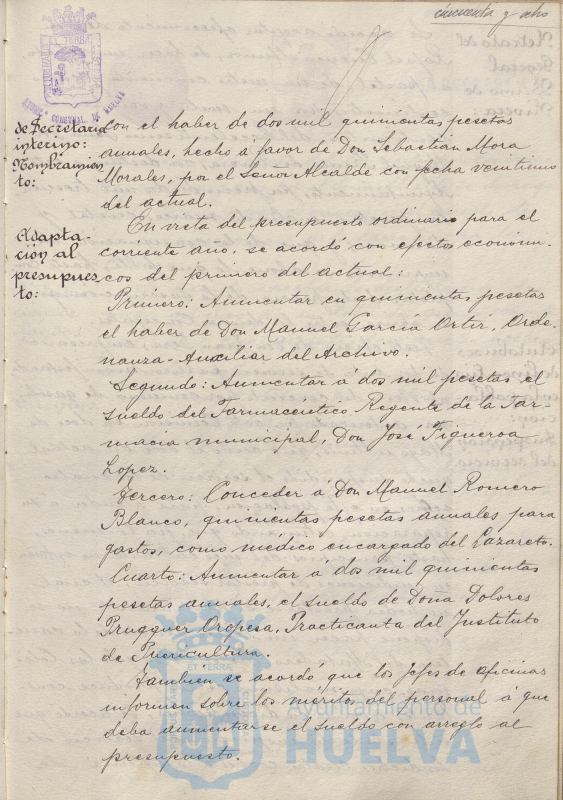 cincuenta y ocho
de Secretario
interino:
Nombramien
to:
con el haber de dos mil quinientas pesetas
anuales, hecho á favor de Don Sebastián Mora
Morales, por el Señor Alcalde con fecha veintiuno
del actual.
Adapta-
ción al
presupues
to:
En vista del presupuesto ordinario para el
corriente año, se acordó con efectos económi-
cos del primero del actual:
Primero: Aumentar en quinientas pesetas
el haber de Don Manuel García Ortiz, Orde-
nanza-Auxiliar del Archivo.
Segundo: Aumentar á dos mil pesetas el
sueldo del Farmacéutico Regente de la Far-
macia municipal, Don José Figueroa
Lopez.
Tercero: Conceder á Don Manuel Romero
Blanco, quinientas pesetas anuales para
gastos, como médico encargado del Lazareto.
Cuarto: Aumentar á dos mil quinientas
pesetas anuales, el sueldo de Doña Dolores
Prugquer Oropesa, Practicanta del Instituto
de Puericultura.
Tambien se acordó que los Jefes de oficinas
informen sobre los méritos del personal á que
deba aumentarse el sueldo con arreglo al
presupuesto.
Ayuntamiento de
HUELVA